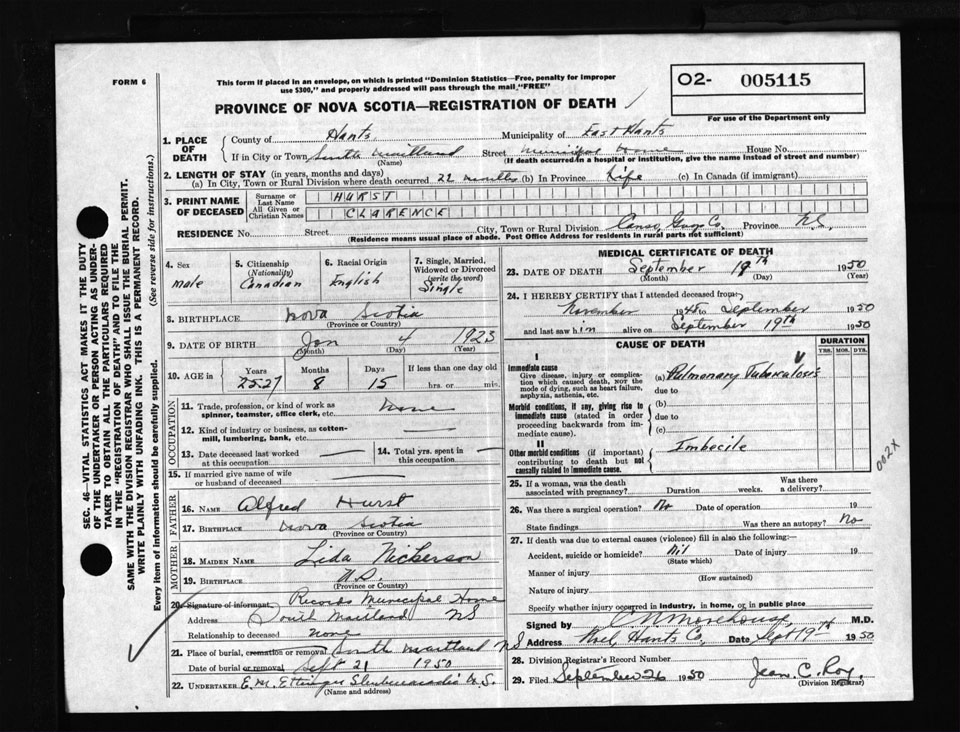 FORM 6
This form if placed in an envelope, on which is printed "Dominion Statistics—Free, penalty for improper
use $300," and properly addressed will pass through the mail "FREE"
O2- 005115
For use of the Department only
PROVINCE OF NOVA SCOTIA—REGISTRATION OF DEATH
1. PLACE OF DEATH
County of Hants Municipality of East Hants
If in City or Town South Maitland Street Municipal Home House No.
(Name) (If death occurred in a hospital or institution, give the name instead of street and number)
2. LENGTH OF STAY (in years, months and days)
(a) In City, Town or Rural Division where death occurred 22 months (b) In Province Life (c) In Canada (if immigrant)
3. PRINT NAME OF DECEASED
Surname or Last Name HURST
All Given or Christian Names CLARENCE
RESIDENCE No. Street City, Town or Rural Division Canso, Guy. Co. Province N.S.
(Residence means usual place of abode. Post Office Address for residents in rural parts not sufficient)
4. Sex male
5. Citizenship (Nationality) Canadian
6. Racial Origin English
7. Single, Married, Widowed or Divorced (write the word) Single
8. BIRTHPLACE Nova Scotia
(Province or Country)
9. DATE OF BIRTH Jan 4 1923
(Month) (Day) (Year)
10. AGE in Years Months Days If less than one day old
25 27 8 15 hrs. or min.
OCCUPATION
11. Trade, profession, or kind of work as spinner, teamster, office clerk, etc. none
12. Kind of industry or business, as cotton-mill, lumbering, bank, etc. —
13. Date deceased last worked at this occupation —
14. Total yrs. spent in this occupation —
15. If married give name of wife or husband of deceased
FATHER
16. NAME Alfred Hurst
17. BIRTHPLACE Nova Scotia
(Province or Country)
MOTHER
18. MAIDEN NAME Lida Nickerson
19. BIRTHPLACE N.S.
(Province or Country)
20. Signature of informant Records Municipal Home
Address South Maitland NS
Relationship to deceased none
21. Place of burial, cremation or removal South Maitland NS
Date of burial or removal Sept 21 1950
22. UNDERTAKER E. M. Ettinger Shubenacadie N.S.
(Name and address)
MEDICAL CERTIFICATE OF DEATH
23. DATE OF DEATH September 19th 1950
(Month) (Day) (Year)
24. I HEREBY CERTIFY that I attended deceased from
November 1948 to September 1950
and last saw him alive on September 19th 1950
CAUSE OF DEATH
DURATION
YRS. MOS. DYS.
I
Immediate cause
Give disease, injury or complication which caused death, not the mode of dying, such as heart failure, asphyxia, asthenia, etc.
(a) Pulmonary Tuberculosis
due to
Morbid conditions, if any, giving rise to immediate cause (stated in order proceeding backwards from immediate cause).
(b)
due to
(c)
II
Other morbid conditions (if important) contributing to death but not causally related to immediate cause.
Imbecile
002X
25. If a woman, was the death associated with pregnancy? Duration weeks. Was there a delivery?
26. Was there a surgical operation? No Date of operation 19
State findings Was there an autopsy? No
27. If death was due to external causes (violence) fill in also the following:
Accident, suicide or homicide? Nil Date of injury 19
(State which)
Manner of injury
(How sustained)
Nature of injury
Specify whether injury occurred in industry, in home, or in public place
Signed by Morehouse, M.D.
Address Noel, Hants Co, Date Sept 19th 1950
28. Division Registrar's Record Number
29. Filed September 26 1950 Jean C. Roy
(Division Registrar)
SEC. 46—VITAL STATISTICS ACT MAKES IT THE DUTY
OF THE UNDERTAKER OR PERSON ACTING AS UNDER-
TAKER TO OBTAIN ALL THE PARTICULARS REQUIRED
IN THE "REGISTRATION OF DEATH" AND TO FILE THE
SAME WITH THE DIVISION REGISTRAR WHO SHALL ISSUE THE BURIAL PERMIT.
WRITE PLAINLY WITH UNFADING INK. THIS IS A PERMANENT RECORD.
Every item of information should be carefully supplied. (See reverse side for instructions.)